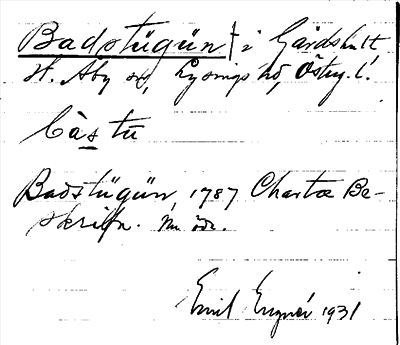 Badstügün † i Gårdshult
St. Åby sn, Lysings hd, Östg. l.
bàstu
Badstügün, 1787 Charta Be-
skrifn. Nu öde.
Emil 1931